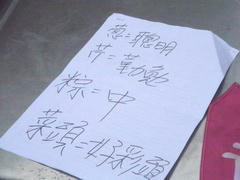 蔥=聰明
芹=勤勉
粽=中
菜頭=好彩頭